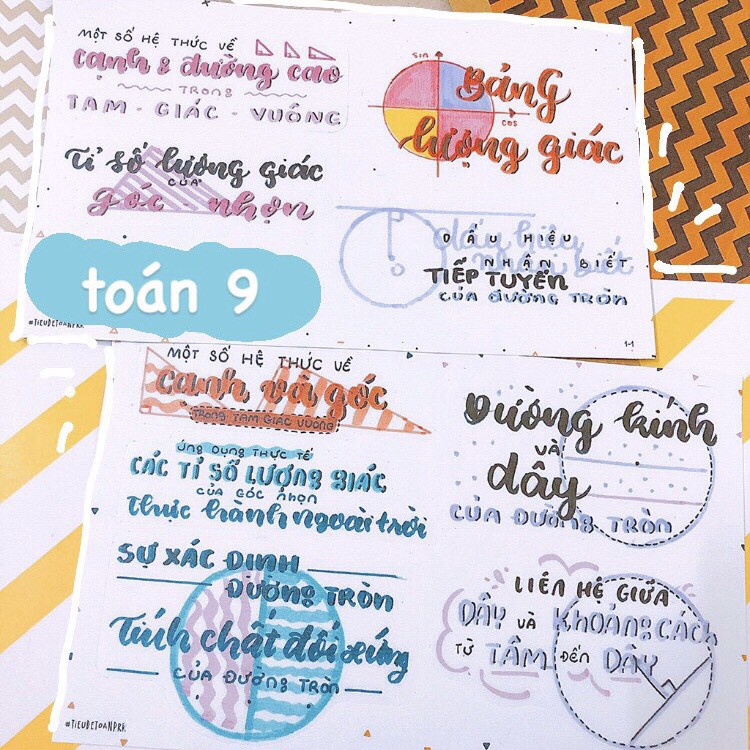 MỘT SỐ HỆ THỨC VỀ
cạnh & đường cao
TRONG
TAM - GIÁC - VUÔNG
sin
cos
BẢNG
lượng giác
Tỉ số lượng giác
CỦA
góc - nhọn
dấu hiệu
nhận biết
DẤU HIỆU
NHẬN BIẾT
TIẾP TUYẾN
CỦA ĐƯỜNG TRÒN
toán 9
#TIEUDETOANPRK
MỘT SỐ HỆ THỨC VỀ
cạnh và góc
TRONG TAM GIÁC VUÔNG
ỨNG DỤNG THỰC TẾ
CÁC TỈ SỐ LƯỢNG GIÁC
CỦA GÓC NHỌN
Thực hành ngoài trời
SỰ XÁC ĐỊNH
ĐƯỜNG TRÒN
Tính chất đối xứng
CỦA ĐƯỜNG TRÒN
#TIEUDETOANPRK
Đường kính
VÀ
dây
CỦA ĐƯỜNG TRÒN
LIÊN HỆ GIỮA
DÂY VÀ KHOẢNG CÁCH
TỪ TÂM ĐẾN DÂY